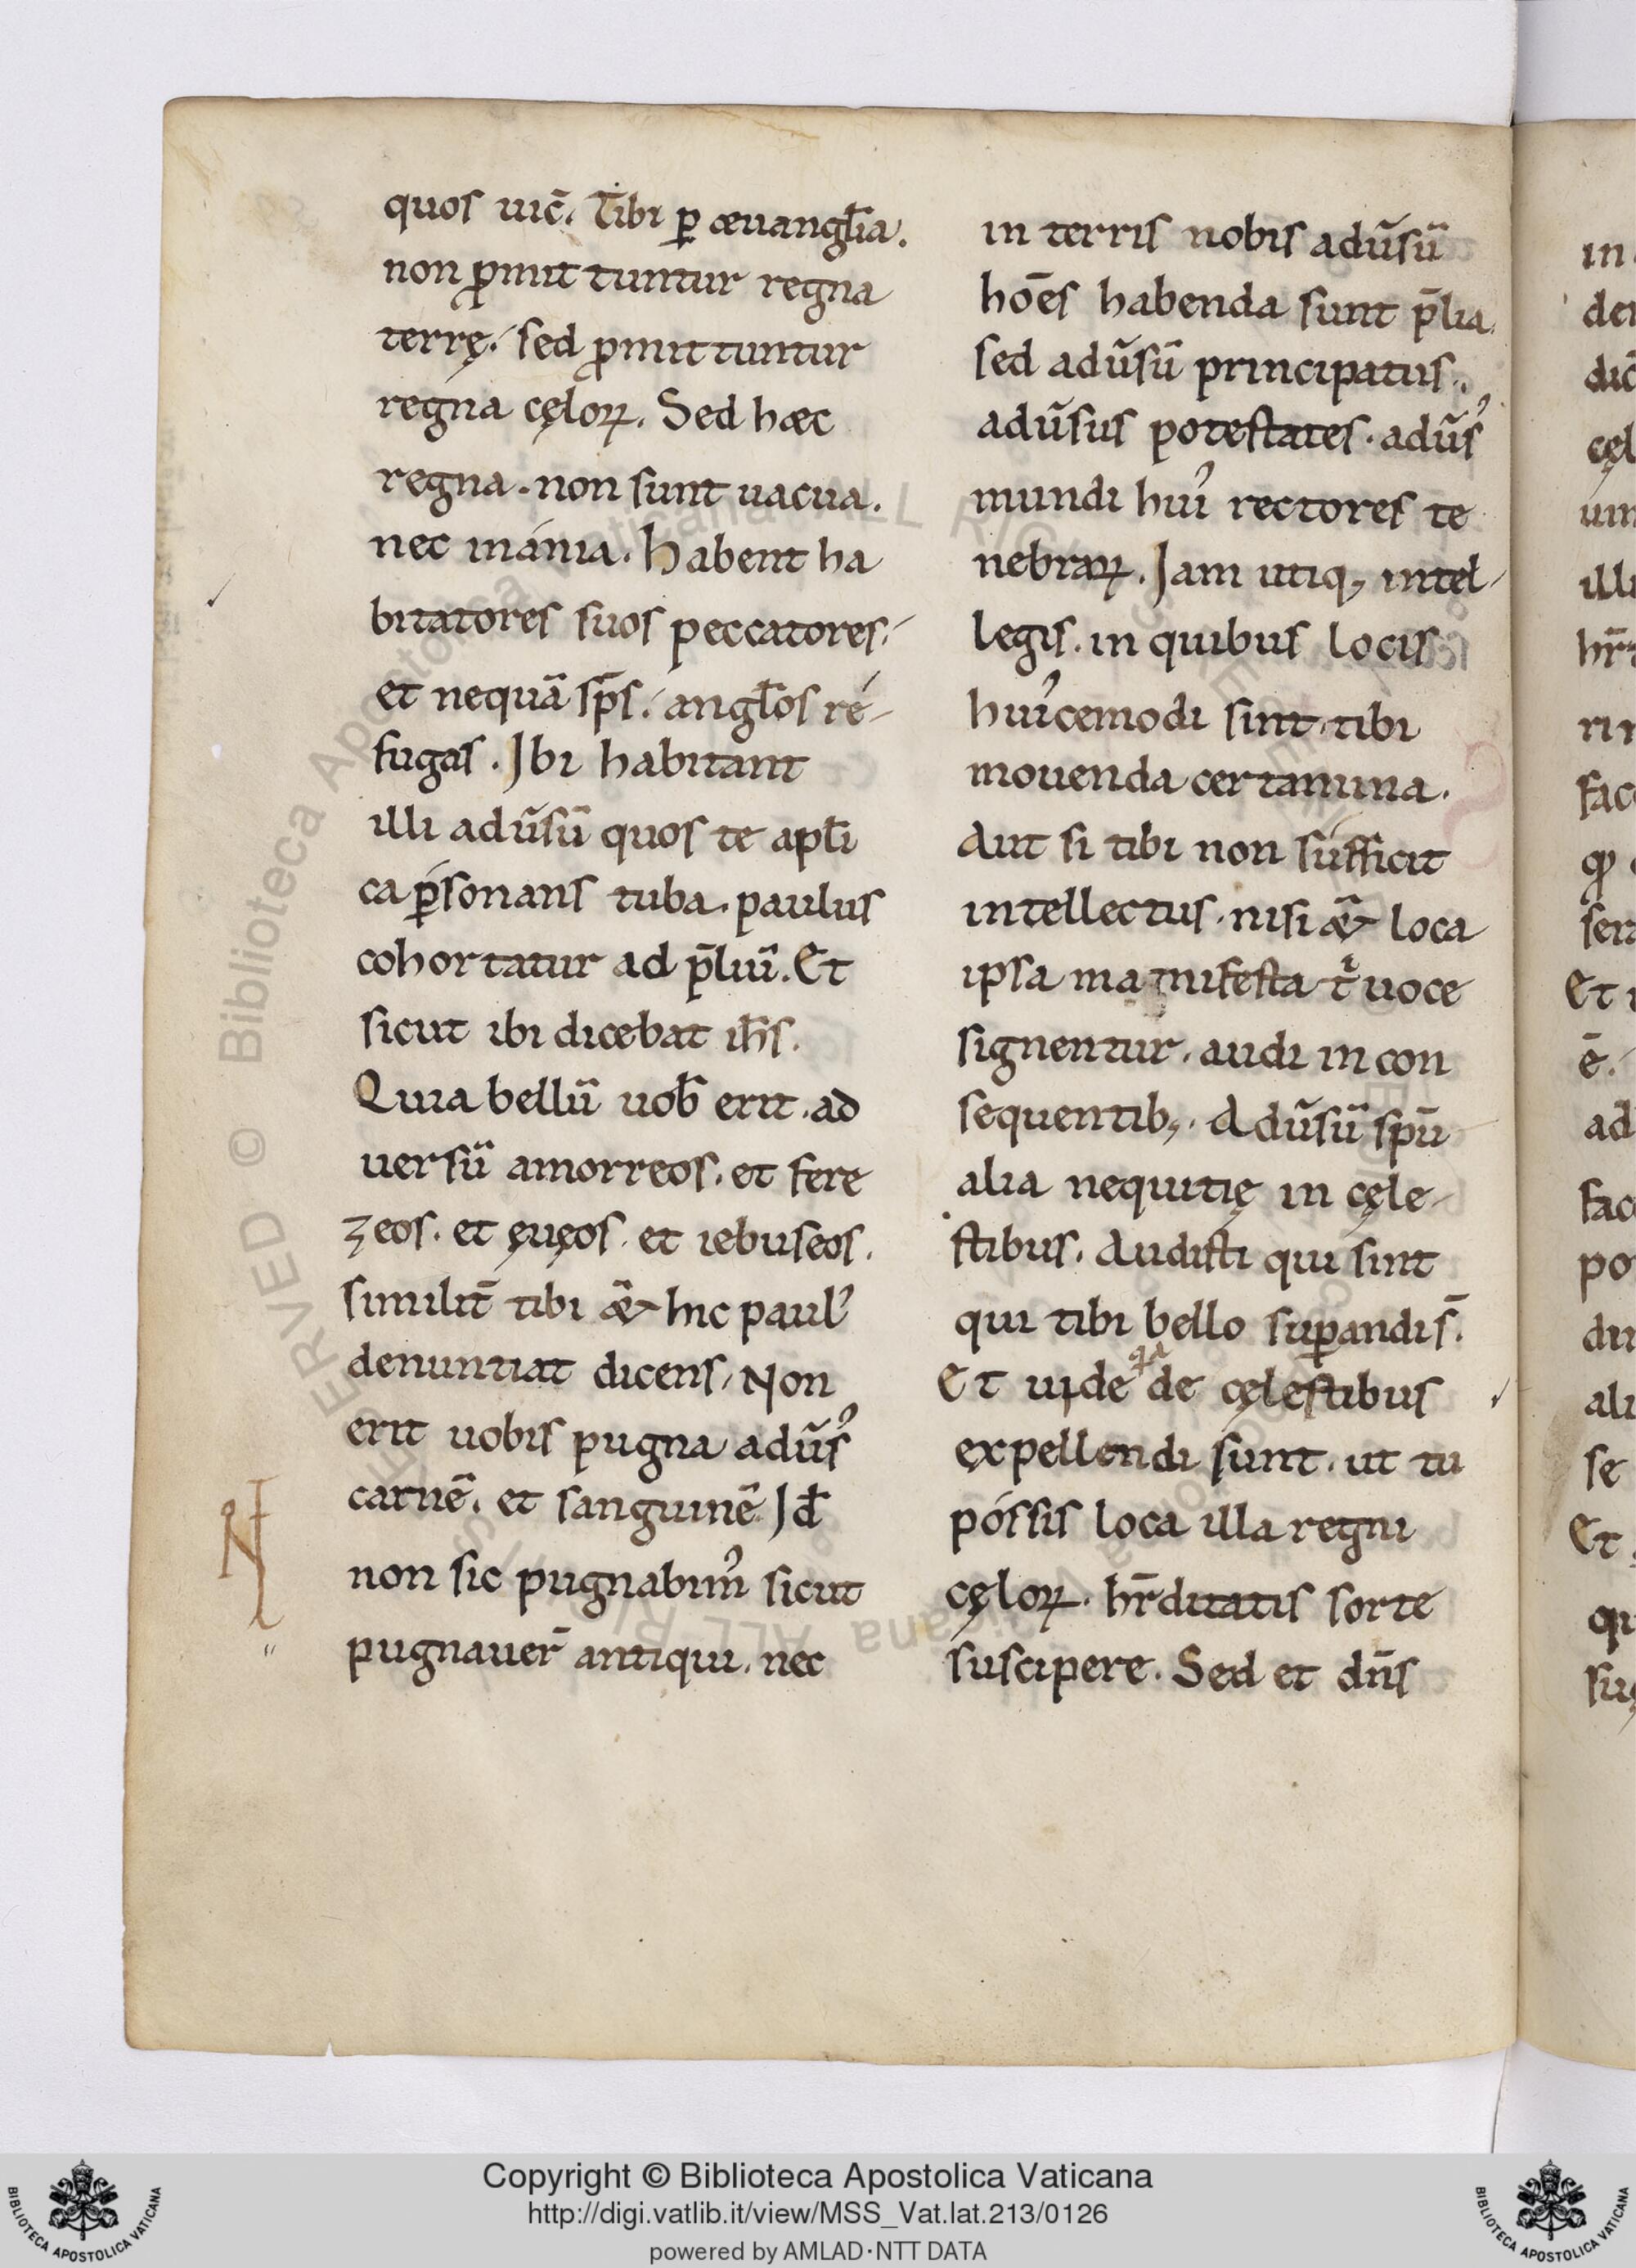 quos uic̄. Tibi ꝑ æuangl̄ia.
non ꝓmittuntur regna
terrę. sed ꝓmittuntur
regna cęloꝝ. Sed hæc
regna. non sunt uacua.
nec inánia. Habent ha
bitatores suos peccatores.
et nequā sp̄s. angl̄os ré-
fugas. Ibi habitant
illi adūsū quos te apl̄i
ca ꝑsonans tuba. paulus
cohortatur ad p̄liū. Et
sicut ibi dicebat ih̄s.
Quia bellū uob̄ erit. ad
uersū amorreos. et fere
zeos. et ęuęos. et iebuseos.
similit̄ tibi & hic paul᾽
denuntiat dicens, Non
erit uobis pugna adūs᾽
carnē. et sanguinē. Id̄
non sic pugnabim᾽ sicut
pugnauer̄ antiqui. nec
in terris nobis adūsū
hōes habenda sunt p̄lia.
sed adūsū principatus.
adūsus potestates. adūs᾽
mundi hui᾽ rectores te
nebraꝝ. Iam utiq; intel-
legis. in quibus locis
hui᾽cemodi sint. tibi
mouenda certamina.
Aut si tibi non súfficit
intellectus. nisi & loca
ipsa ma nifesta tͥ uoce
signentur. audi in con
sequentib;. Adūsū spū
alia nequitię in cęle-
stibus. Audisti qui sint
qui tibi bello suꝑandis̄.
Et uide qͣ de cęlestibus
expellendi sunt. ut tu
póssis loca illa regni
cęloꝝ. hr̄ditatis sorte
suscipere. Sed et dn̄s
Copyright © Biblioteca Apostolica Vaticana
http://digi.vatlib.it/view/MSS_Vat.lat.213/0126
powered by AMLAD·NTT DATA
BIBLIOTECA APOSTOLICA VATICANA
BIBLIOTECA APOSTOLICA VATICANA